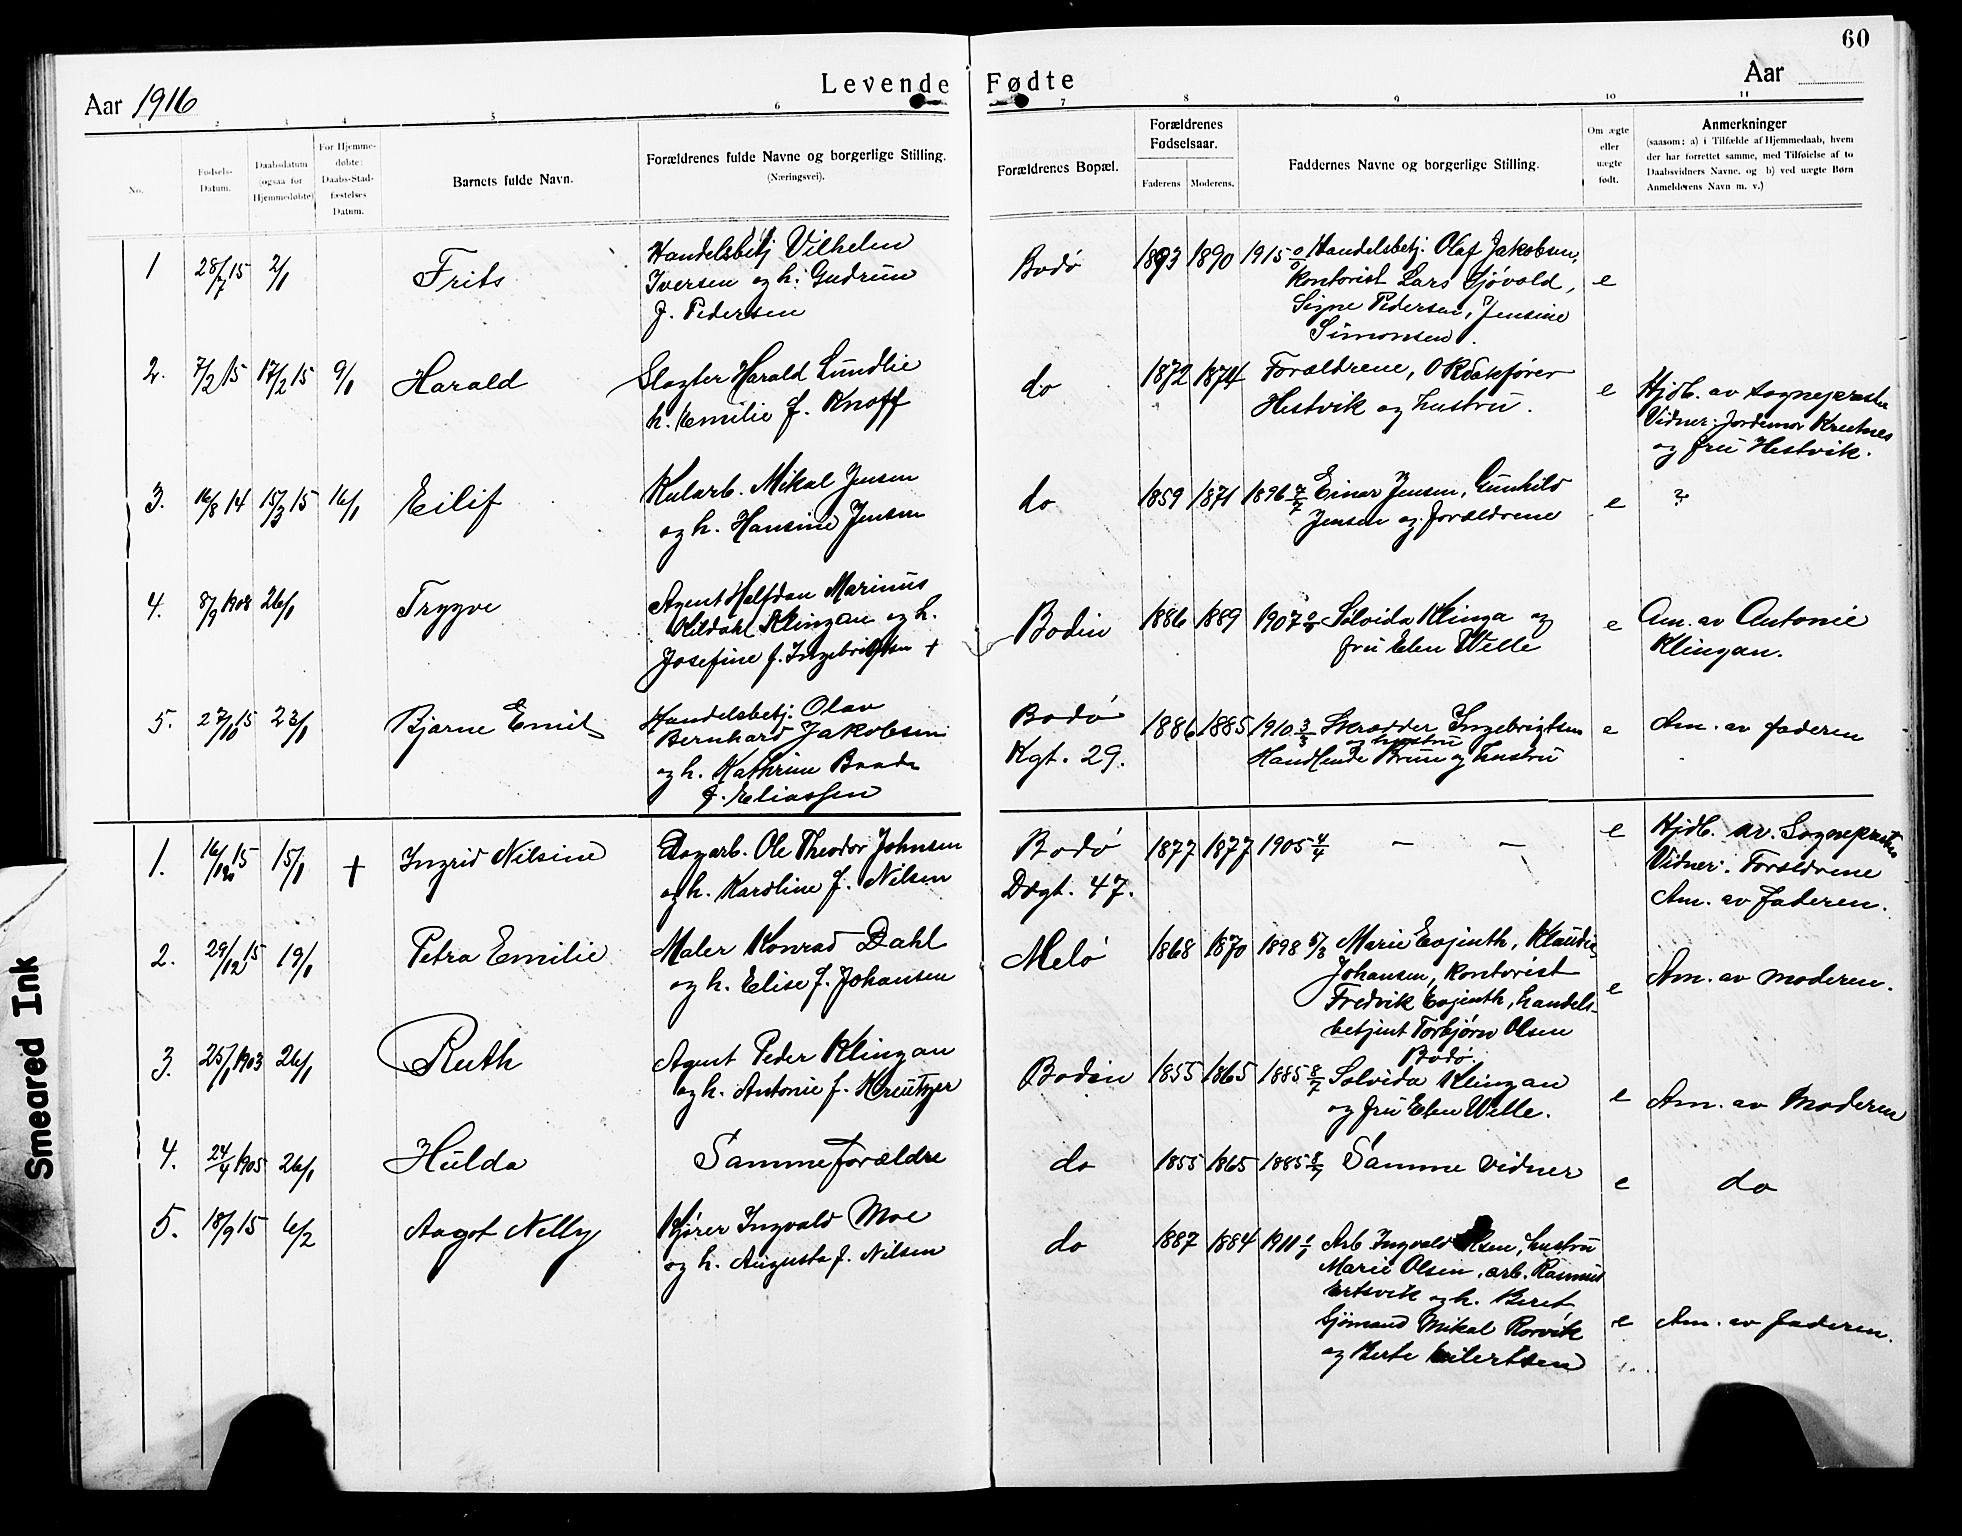 60
Levende Fødte
Aar 1916
Aar
1 2 3 4 5 6 7 8 9 10 11
No.
Fødsels-
Datum.
Daabsdatum
(ogsaa for
Hjemmedøbte)
For Hjemme-
døbte:
Daabs-Stad-
fæstelses
Datum.
Barnets fulde Navn.
Forældrenes fulde Navne og borgerlige Stilling.
(Næringsvei).
Forældrenes Bopæl.
Forældrenes
Fødselsaar.
Faderens
Moderens.
Faddernes Navne og borgerlige Stilling.
Om ægte
eller
uægte
født.
Anmerkninger
(saasom: a) i Tilfælde af Hjemmedaab, hvem
der har forrettet samme, med Tilføielse af to
Daabsvidners Navne, og b) ved uægte Børn
Anmelderens Navn m. v.)
1 28/7 15 2/1 Frits
Handelsbetj Vilhelm
Iversen og h. Gudrun
f. Pedersen
Bodø 1893 1890 1915
Handelsbetj. Olaf Jakobsen,
Kontorist Lars Gjøvold,
Signe Pedersen, Jensine
Simonsen.
e
2. 7/2 15 17/2 15 9/1 Harald
Slagter Harald Lundlie
h. Emilie f. Knoff
do 1872 1874
Forældrene,
Hestvik og hustru.
e
Hjdb. av Sognepresten
Vidner: Jordemor
og fru Hestvik.
3. 16/8 14 15/3 15 16/1 Eilif
Kularb. Mikal Jensen
og h. Hansine Jensen
do 1859 1871 1896 7/7
Einar Jensen, Gunhild
Jensen og forældrene
e ?
4. 8/9 1908 26/1 Trygve
Agent Halfdan Marinus
Kildahl Klingan og h.
Josefine f. Ingebrigtsen +
Bodin 1886 1889 1907
Solvida Klinga og
fru Elen Welle
e
Am. av Antonie
Klingan.
5. 27/10 15 23/1 Bjarne Emil
Handelsbetj. Olav
Bernhard Jakobsen
og h. Kathrine Baade
f. Eliassen
Bodø
Kgt. 29.
1886 1885 1910 3/3
Skrædder Ingebrigtsen
og hustru
Handlende Bruun og hustru
e
Am. av faderen
1. 16/12 15 15/1 + Ingrid Nilsine
Dagarb. Ole Theodor Johnsen
og h. Karoline f. Nilsen
Bodø
Dvgt. 47.
1877 1877 1905 4/4 — —
e
Hjdb. av. Sognepresten
Vidner: Forældrene
Am. av Faderen.
2. 29/12 15 19/1 Petra Emilie
Maler Konrad Dahl
og h. Elise f. Johansen
Melø 1868 1870 1898 5/8
Marie Evjenth, Klaudie
Johansen, kontorist
Fredrik Evjenth, handels-
betjent Torbjørn Olsen
Bodø.
e
Am. av moderen.
3. 25/1 1903 26/1 Ruth
Agent Peder Klingan
og h. Antonie f. Kreutzer
Bodin 1855 1865 1885 8/7
Solvida Klingan
og fru Elen Welle.
e
Am. av Moderen
4. 24/4 1905 26/1 Hulda
Samme forældre
do 1855 1865 1885 8/7
Samme vidner
e
do
5. 18/9 15 6/2 Aagot Nelly
Kjører Ingvald Moe
og h. Augusta f. Nilsen
do 1887 1884 1911
Arb Ingvald Olsen, hustru
Marie Olsen, arb. Rasmus
Ertsvik og h. Beret
Sjømand Mikal Rorvik
og Berte Eilertsen
e
Am. av faderen.
Smeared Ink